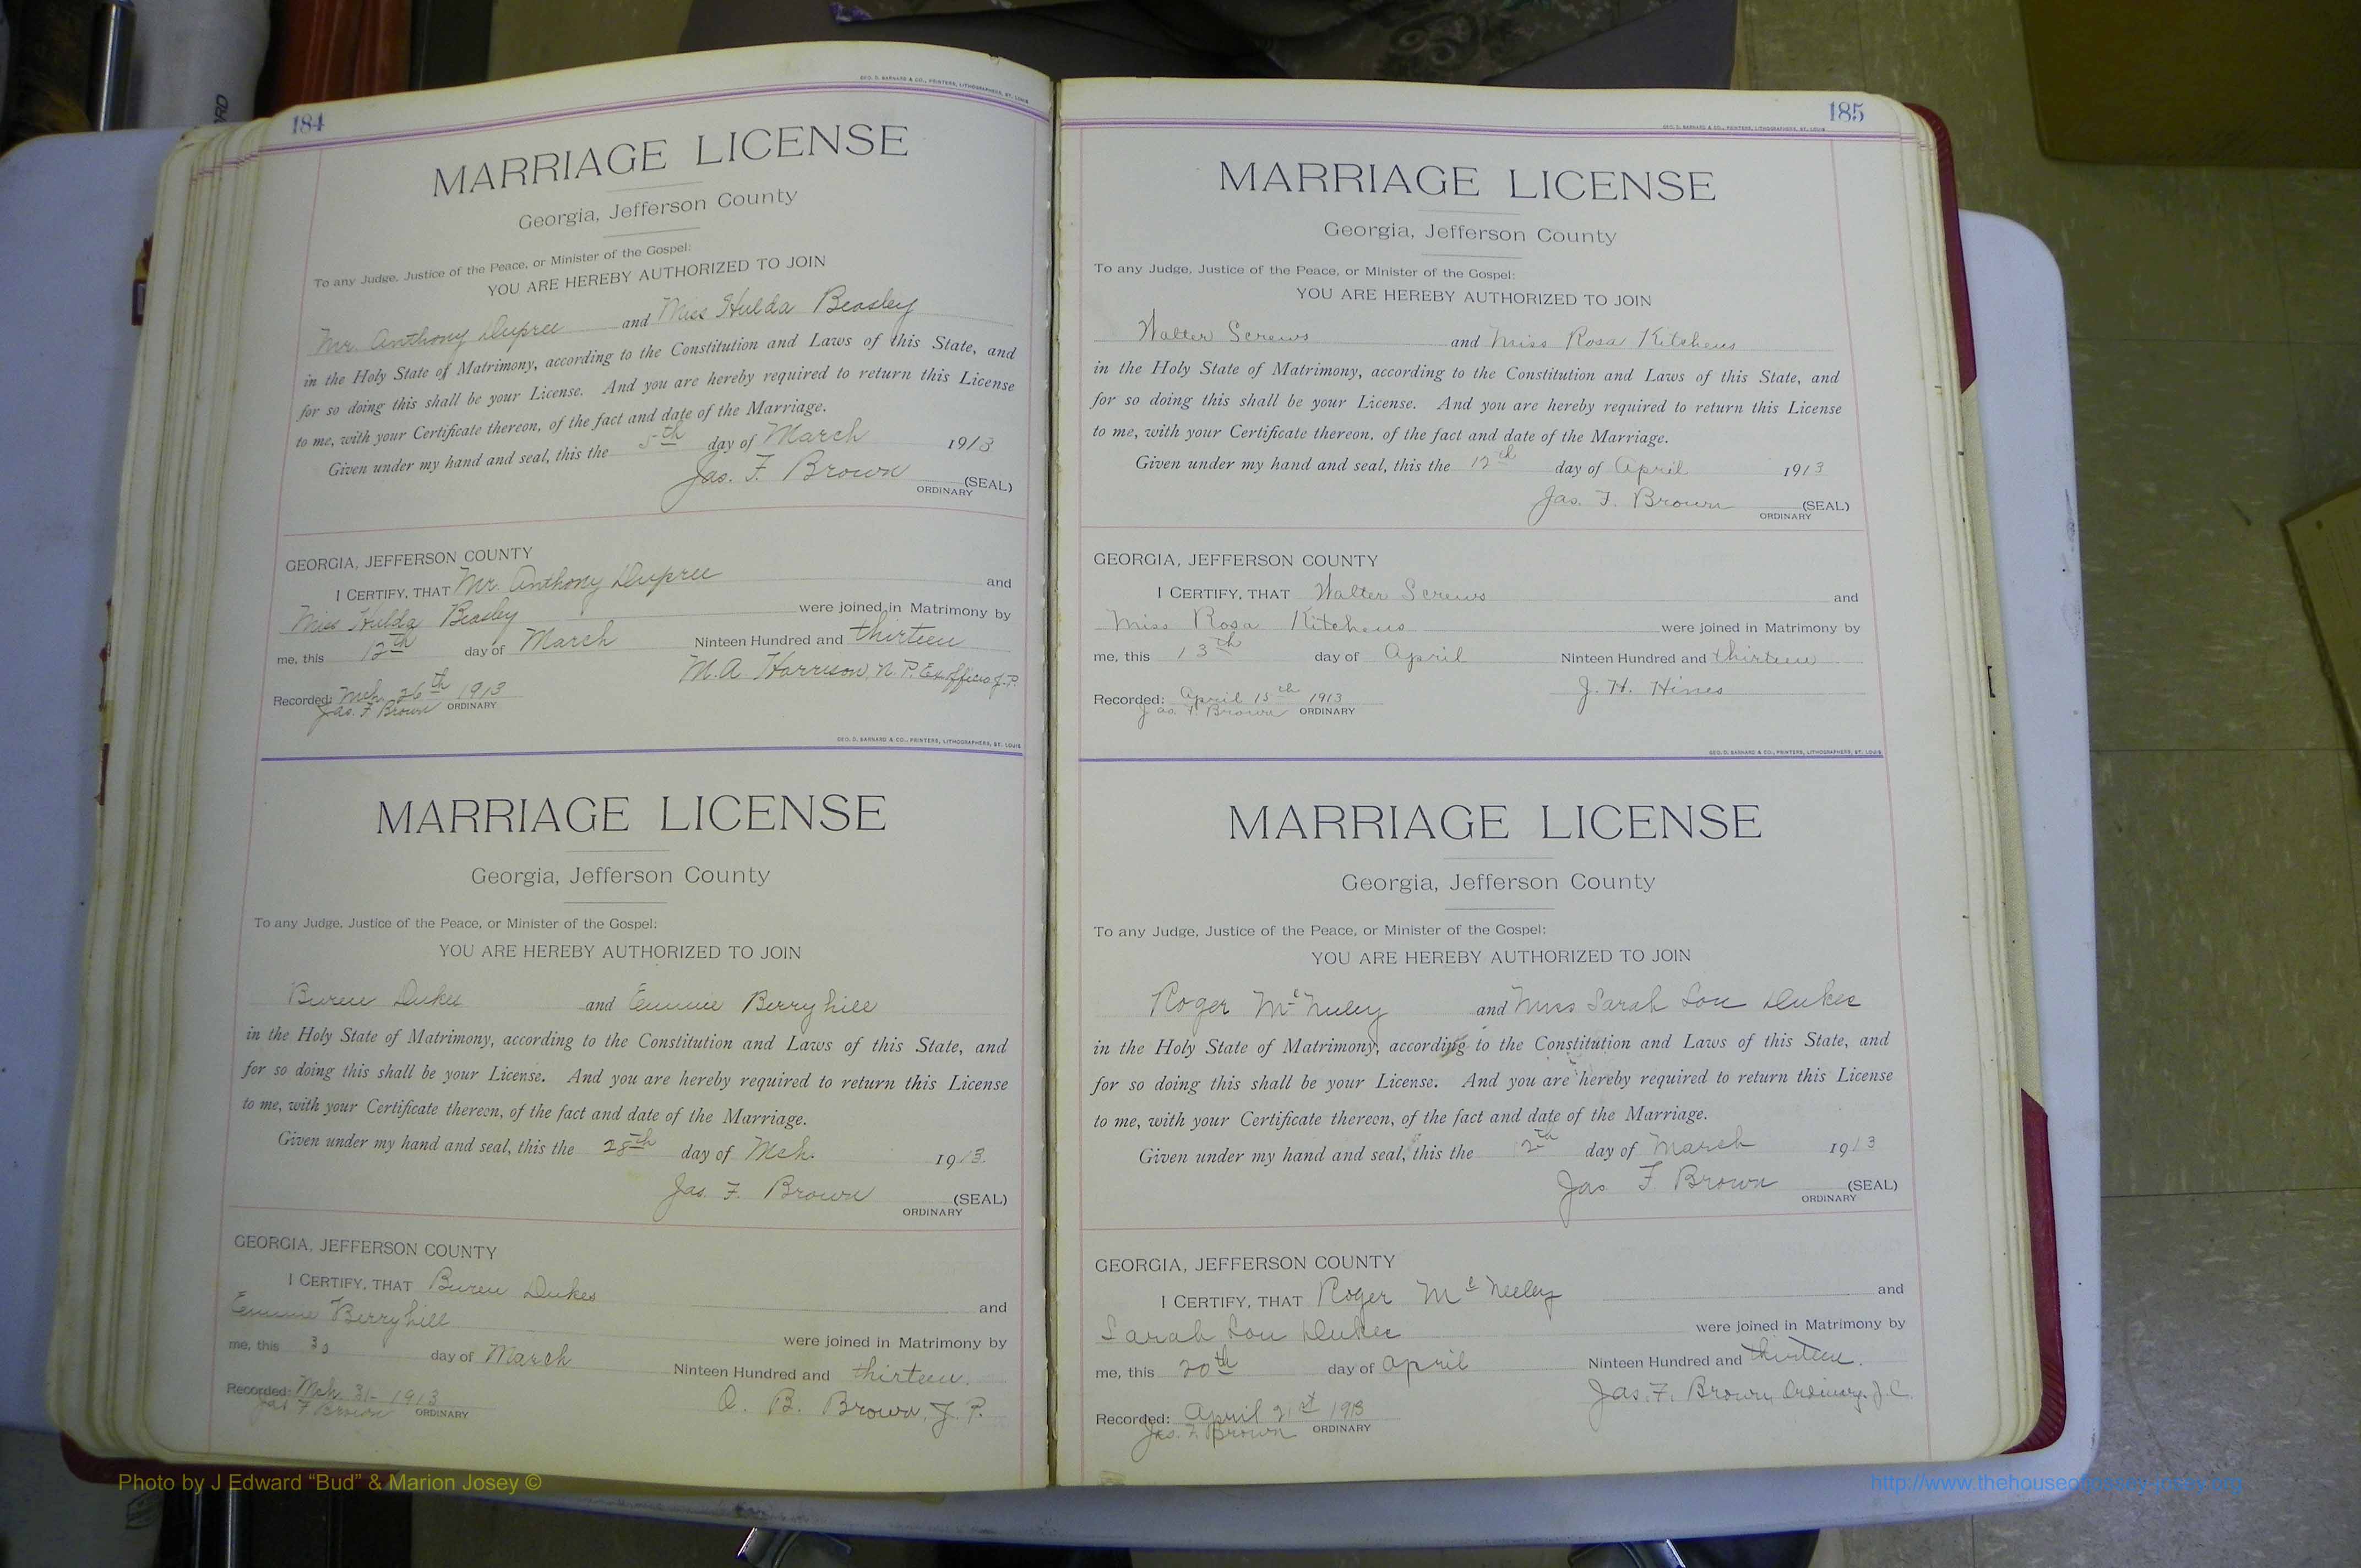 184
GEO. D. BARNARD & CO., PRINTERS, LITHOGRAPHERS, ST. LOUIS
MARRIAGE LICENSE
Georgia, Jefferson County
To any Judge, Justice of the Peace, or Minister of the Gospel:
YOU ARE HEREBY AUTHORIZED TO JOIN
Mr. Anthony Dupree and Miss Hulda Beasley
in the Holy State of Matrimony, according to the Constitution and Laws of this State, and
for so doing this shall be your License. And you are hereby required to return this License
to me, with your Certificate thereon, of the fact and date of the Marriage.
Given under my hand and seal, this the 5th day of March 1913
Jas. F. Brown (SEAL)
ORDINARY
GEORGIA, JEFFERSON COUNTY
I CERTIFY, THAT Mr. Anthony Dupree and
Miss Hulda Beasley were joined in Matrimony by
me, this 12th day of March Ninteen Hundred and thirteen
M. A. Harrison, N. P. Ex officio J. P.
Recorded: Mch. 26th 1913
Jas. F Brown ORDINARY
GEO. D. BARNARD & CO., PRINTERS, LITHOGRAPHERS, ST. LOUIS
MARRIAGE LICENSE
Georgia, Jefferson County
To any Judge, Justice of the Peace, or Minister of the Gospel:
YOU ARE HEREBY AUTHORIZED TO JOIN
Buren Dukes and Emmie Berryhill
in the Holy State of Matrimony, according to the Constitution and Laws of this State, and
for so doing this shall be your License. And you are hereby required to return this License
to me, with your Certificate thereon, of the fact and date of the Marriage.
Given under my hand and seal, this the 28th day of Mch. 1913.
Jas. F. Brown (SEAL)
ORDINARY
GEORGIA, JEFFERSON COUNTY
I CERTIFY, THAT Buren Dukes and
Emmie Berryhill were joined in Matrimony by
me, this 30 day of March Ninteen Hundred and thirteen.
O. B. Brown, J. P.
Recorded: Mch 31- 1913
Jas F Brown ORDINARY
185
GEO. D. BARNARD & CO., PRINTERS, LITHOGRAPHERS, ST. LOUIS
MARRIAGE LICENSE
Georgia, Jefferson County
To any Judge, Justice of the Peace, or Minister of the Gospel:
YOU ARE HEREBY AUTHORIZED TO JOIN
Walter Screws and Miss Rosa Kitchens
in the Holy State of Matrimony, according to the Constitution and Laws of this State, and
for so doing this shall be your License. And you are hereby required to return this License
to me, with your Certificate thereon, of the fact and date of the Marriage.
Given under my hand and seal, this the 12th day of April 1913
Jas. F. Brown (SEAL)
ORDINARY
GEORGIA, JEFFERSON COUNTY
I CERTIFY, THAT Walter Screws and
Miss Rosa Kitchens were joined in Matrimony by
me, this 13th day of April Ninteen Hundred and thirteen
J. H. Hines
Recorded: April 15th 1913
Jas. F. Brown ORDINARY
GEO. D. BARNARD & CO., PRINTERS, LITHOGRAPHERS, ST. LOUIS
MARRIAGE LICENSE
Georgia, Jefferson County
To any Judge, Justice of the Peace, or Minister of the Gospel:
YOU ARE HEREBY AUTHORIZED TO JOIN
Roger McNeely and Miss Sarah Lou Dukes
in the Holy State of Matrimony, according to the Constitution and Laws of this State, and
for so doing this shall be your License. And you are hereby required to return this License
to me, with your Certificate thereon, of the fact and date of the Marriage.
Given under my hand and seal, this the 12th day of March 1913
Jas F. Brown (SEAL)
ORDINARY
GEORGIA, JEFFERSON COUNTY
I CERTIFY, THAT Roger McNeeley and
Sarah Lou Dukes were joined in Matrimony by
me, this 20th day of April Ninteen Hundred and thirteen.
Jas. F. Brown, Ordinary J. C.
Recorded: April 21st 1913
Jas. F. Brown ORDINARY
Photo by J Edward “Bud” & Marion Josey ©